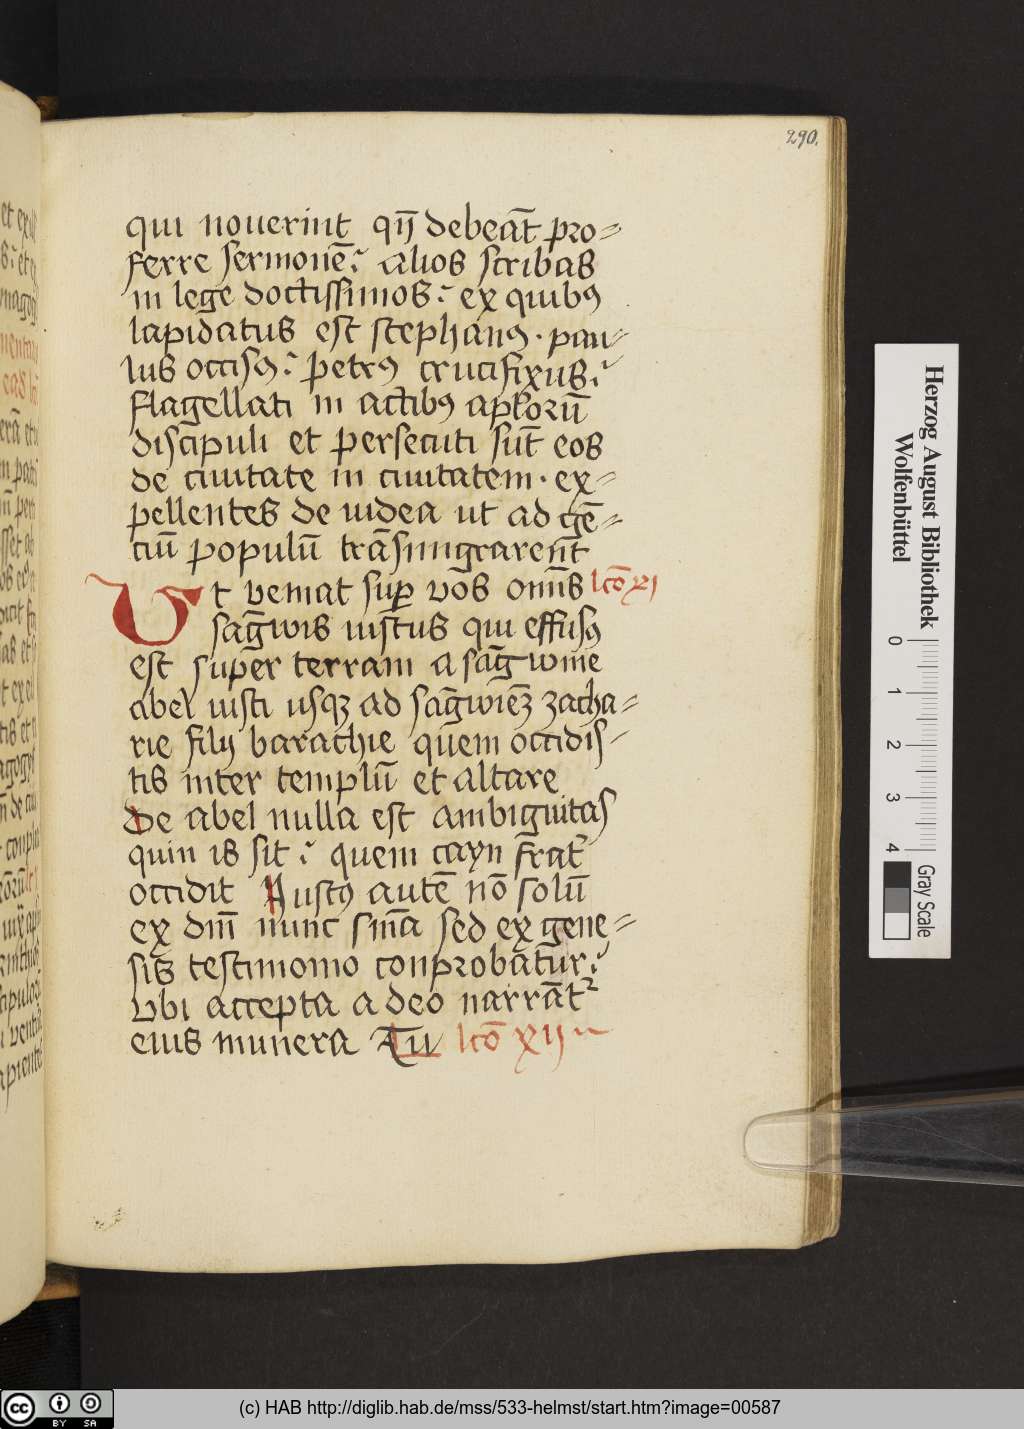 290.
qui nouerint qn̄ debeāt pro=
ferre sermonē: alios scribas
in lege doctissimos: ex quibꝰ
lapidatus est stephanꝰ· pau=
lus occisꝰ: petrꝰ crucifixus:
flagellati in actibꝰ apl̄orū
discipuli et persecuti sūt eos
de ciuitate in ciuitatem· ex=
pellentes de iudea ut ad gē=
ciū populū trāsmigrarent̄
Ut veniat suꝑ vōs omn̄s lcō xi
sāgwis iustus qui effusꝰ
est super terram a sāgwine
abel iusti usqꝫ ad sāgwinēꝫ zacha=
rie filij barachie quem occidis=
tis inter templū et altare
de abel nulla est ambiguitas
quin is sit: quem cayn frat̄
occidit Iustꝰ autē nō solū
ex dnī nunc sn̄ia sed ex gene=
sis testimonio conprobatur:
Ubi accepta a deo narrāt᷑
eius munera Tu lcō xij
Herzog August Bibliothek
Wolfenbüttel
0 1 2 3 4
Gray Scale
cc BY SA
(c) HAB http://diglib.hab.de/mss/533-helmst/start.htm?image=00587